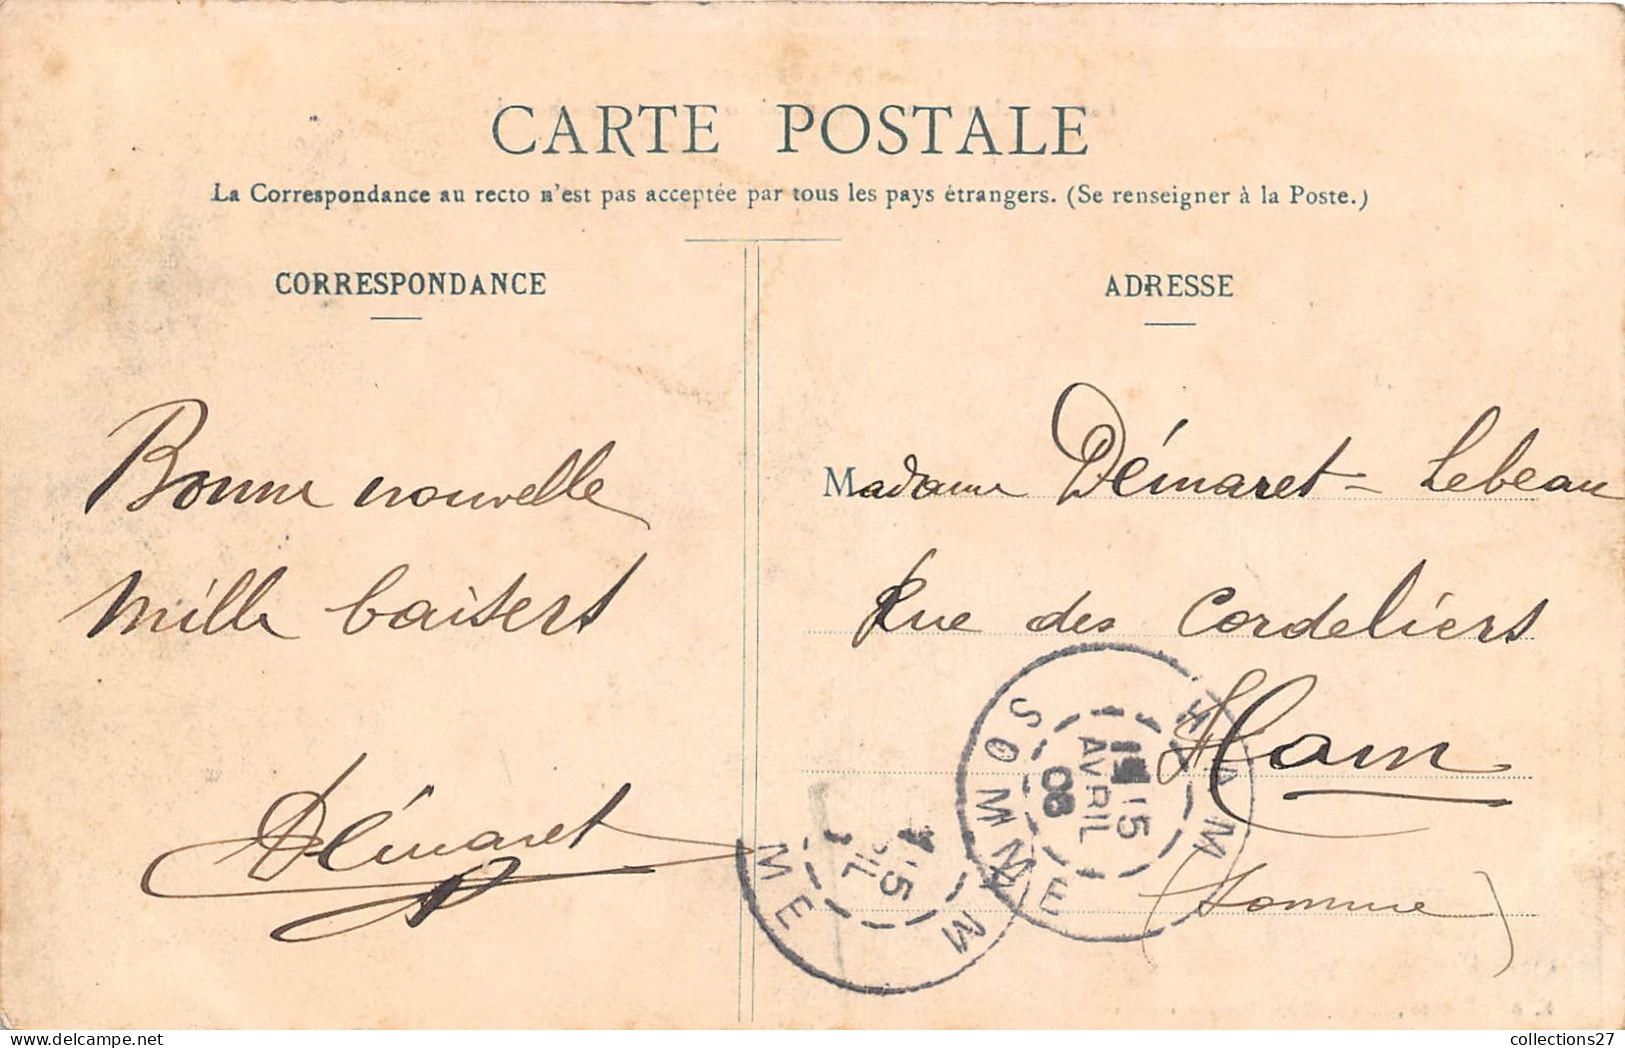 CARTE POSTALE
La Correspondance au recto n'est pas acceptée par tous les pays étrangers. (Se renseigner à la Poste.)
CORRESPONDANCE
Bonne nouvelle
Mille baisers
Démaret
ADRESSE
Madame Démaret = Lebeau
Rue des Cordeliers
Ham
(Somme)
HAM
15
AVRIL
08
SOMME
15
IL
M
ME
collections27